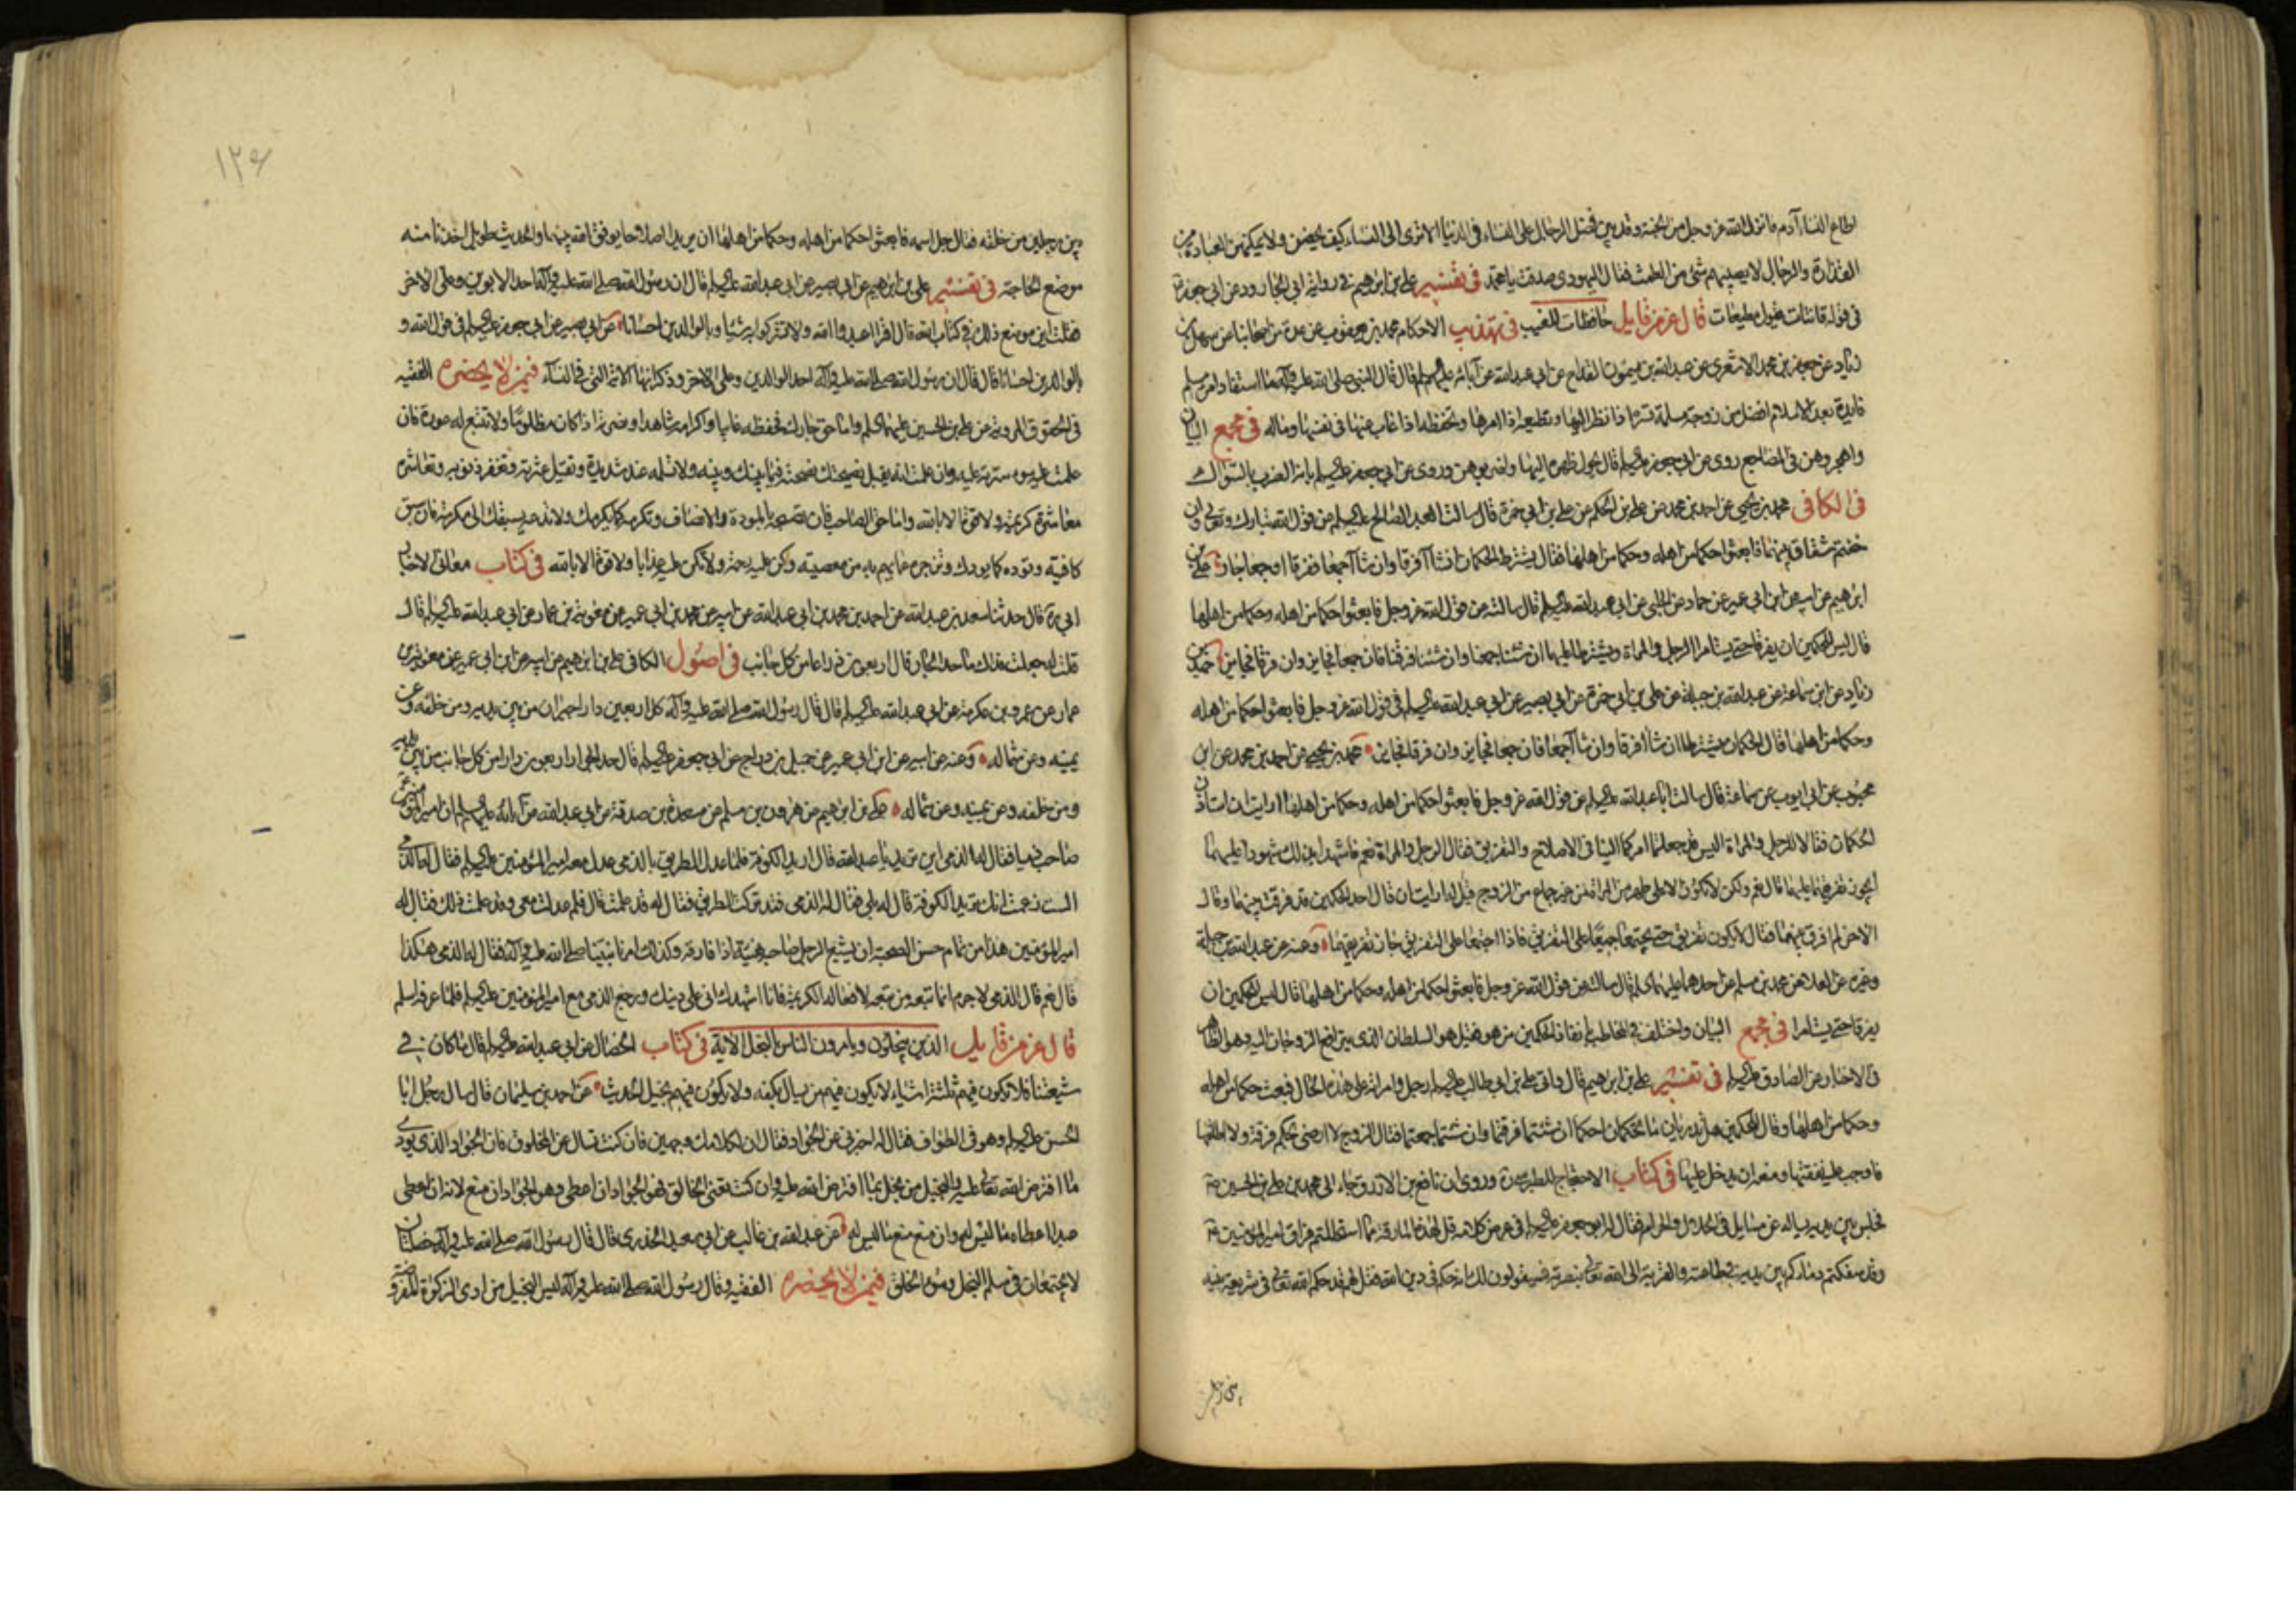 اطاع النساء آدم فانزل الله عز وجل من الجنة وقد بين فضل الرجال على النساء في الدنيا الا ترى الى النساء كيف يحضن ولا يمكنهن العبادة من
القذارة والرجال لا يصيبهم شئ من الطمث فقال اليهودى صدقت يا محمد في تفسير علي بن ابرهيم في رواية ابي الجارود عن ابي جعفر
في قوله قانتات يقول مطيعات قال عز من قايل حافظات للغيب في تهذيب الاحكام محمد بن يعقوب عن عدة من اصحابنا عن سهل بن
زياد عن جعفر بن محمد الاشعري عن عبد الله بن ميمون القداح عن ابي عبد الله عن آبائه عليهم السلم قال قال النبي صلى الله عليه وآله ما استفاد امرء مسلم
فايدة بعد الاسلام افضل من زوجة مسلمة تسره اذا نظر اليها وتطيعه اذا امرها وتحفظه اذا غاب عنها في نفسها وماله في مجمع البيان
واهجروهن في المضاجع روى عن ابي جعفر عليه السلم قال يحول ظهره اليها واضربوهن وروى عن ابي جعفر عليه السلم بانه الضرب بالسواك
في الكافى محمد بن يحيى عن احمد بن محمد عن علي بن الحكم عن علي بن ابي حمزة قال سالت العبد الصالح عليه السلم عن قول الله تبارك وتعالى وان
خفتم شقاق بينهما فابعثوا حكما من اهله وحكما من اهلها فقال يشترط الحكمان ان شاآ فرقا وان شاآ جمعا ففرقا او جمعا جاز علي بن
ابرهيم عن ابيه عن ابن ابي عمير عن حماد عن الحلبي عن ابي عبد الله عليه السلم قال سالته عن قول الله عز وجل فابعثوا حكما من اهله وحكما من اهلها
قال ليس للحكمين ان يفرقا حتى يستامرا الرجل والمراة ويشترطا عليهما ان شئنا جمعنا وان شئنا فرقنا فان جمعا فجايز وان فرقا فجايز حميد بن
زياد عن ابن سماعة عن عبد الله بن جبلة عن علي بن ابي حمزة عن ابي بصير عن ابي عبد الله عليه السلم في قول الله عز وجل فابعثوا حكما من اهله
وحكما من اهلها قال الحكمان يشترطان ان شاآ فرقا وان شاآ جمعا فان جمعا فجايز وان فرقا فجايز محمد بن يحيى عن احمد بن محمد عن ابن
محبوب عن ابي ايوب عن سماعة قال سالت ابا عبد الله عليه السلم عن قول الله عز وجل فابعثوا حكما من اهله وحكما من اهلها ارايت ان استاذن
الحكمان فقالا للرجل والمراة اليس قد جعلتما امركما الينا في الاصلاح والتفريق فقال الرجل والمراة نعم فاشهدا بذلك شهودا عليهما
ايجوز تفريقهما عليهما قال نعم ولكن لا يكون الا على طهر من المراة من غير جماع من الزوج قيل له ارايت ان قال احد الحكمين قد فرقت بينهما وقال
الاخر لم افرق بينهما فقال لا يكون تفريق حتى يجتمعا جميعا على التفريق فاذا اجتمعا على التفريق جاز تفريقهما وعنه عن عبد الله بن جبلة
وغيره عن العلاء عن محمد بن مسلم عن احدهما عليهما السلم قال سالته عن قول الله عز وجل فابعثوا حكما من اهله وحكما من اهلها قال ليس للحكمين ان
يفرقا حتى يستامرا في مجمع البيان واختلف في المخاطب بانفاذ الحكمين من هو فقيل هو السلطان الذى يترافع الزوجان اليه وهو الظاهر
في الاخبار عن الصادق عليه السلم في تفسير علي بن ابرهيم قال واتى علي بن ابي طالب عليه السلم رجل وامراته على هذه الحال فبعث حكما من اهله
وحكما من اهلها وقال للحكمين هل تدريان ما تحكمان احكما ان شئتما فرقتما وان شئتما جمعتما فقال الزوج لا ارضى بحكم فرقة ولا اطلقها
فاوجب عليه نفقتها ومنعه ان يدخل عليها في كتاب الاحتجاج للطبرسى وروى ان نافع بن الازرق جاء الى محمد بن علي بن الحسين
فجلس بين يديه يساله عن مسايل في الحلال والحرام فقال له ابو جعفر عليه السلم في عرض كلامه قل لهذه المارقة بما استحللتم فراق امير المؤمنين
وقد سفكتم دمائكم بين يديه في طاعته والقربة الى الله تعالى بنصرته فسيقولون لك انه حكم في دين الله فقل لهم قد حكم الله تعالى في شريعة نبيه
۱۲۶
بين رجلين من خلقه فقال جل اسمه فابعثوا حكما من اهله وحكما من اهلها ان يريدا اصلاحا يوفق الله بينهما والحديث طويل اخذنا منه
موضع الحاجة في تفسير علي بن ابرهيم عن ابي بصير عن ابي عبد الله عليه السلم قال ان رسول الله صلى الله عليه وآله احد الابوين وعلى الاخر
فقلت اين موضع ذلك في كتاب الله قال اقرا اعبدوا الله ولا تشركوا به شيئا وبالوالدين احسانا عن ابي بصير عن ابي جعفر عليه السلم في قول الله و
بالوالدين احسانا قال قال ان رسول الله صلى الله عليه وآله احد الوالدين وعلى الاخر وذكر انها الآية التي في النساء فيمن لا يحضره الفقيه
في الحقوق المروية عن علي بن الحسين عليهما السلم واما حق جارك فحفظه غايبا واكرامه شاهدا ونصرته اذا كان مظلوما ولا تتبع له عورة فان
علمت عليه سوء سترته عليه وان علمت انه يقبل نصيحتك نصحته فيما بينك وبينه ولا تسلمه عند شديدة وتقيل عثرته وتغفر ذنوبه وتعاشره
معاشرة كريمة ولا قوة الا بالله واما حق الصاحب فان تصحبه بالمودة والانصاف وتكرمه كما يكرمك ولا تدعه يسبقك الى مكرمة فان سبق
كافيته وتوده كما يودك وتزجره عما يهم به من معصية وكن عليه رحمة ولا تكن عليه عذابا ولا قوة الا بالله في كتاب معاني الاخبار
ابي ره قال حدثنا سعد بن عبد الله عن احمد بن محمد بن ابي عبد الله عن ابيه عن محمد بن ابي عمير عن معوية بن عمار عن ابي عبد الله عليه السلم قال
قلت له جعلت فداك ما حد الجار قال اربعون ذراعا من كل جانب في اصول الكافي علي بن ابرهيم عن ابيه عن ابن ابي عمير عن معوية بن
عمار عن عمرو بن عكرمة عن ابي عبد الله عليه السلم قال قال رسول الله صلى الله عليه وآله كل اربعين دارا جيران من بين يديه ومن خلفه وعن
يمينه وعن شماله وعنه عن ابيه عن ابن ابي عمير عن جميل بن دراج عن ابي جعفر عليه السلم قال حد الجوار اربعون دارا من كل جانب من بين يديه
ومن خلفه وعن يمينه وعن شماله علي بن ابرهيم عن هرون بن مسلم عن مسعدة بن صدقة عن ابي عبد الله عن آبائه عليهم السلم ان امير المؤمنين
صاحب ذميا فقال له الذمى اين تريد يا عبد الله قال اريد الكوفة فلما عدل الطريق بالذمى عدل معه امير المؤمنين عليه السلم فقال له الذمى
الست زعمت انك تريد الكوفة قال له بلى فقال له الذمى فقد تركت الطريق فقال له قد علمت قال فلم عدلت معى وقد علمت ذلك فقال له
امير المؤمنين هذا من تمام حسن الصحبة ان يشيع الرجل صاحبه هنيئة اذا فارقه وكذلك امرنا نبينا صلى الله عليه وآله فقال له الذمى هكذا
قال نعم قال الذمى لا جرم انما تبعه من تبعه لافعاله الكريمة فانا اشهدك اني على دينك ورجع الذمى مع امير المؤمنين عليه السلم فلما عرفه اسلم
قال عز من قايل الذين يبخلون ويامرون الناس بالبخل الآية في كتاب الخصال عن ابي عبد الله عليه السلم قال ما كان في
شيعتنا فلا يكون فيهم ثلثة اشياء لا يكون فيهم من يسال بكفه ولا يكون فيهم بخيل الحديث عن احمد بن سليمان قال سال رجل ابا
الحسن عليه السلم وهو في الطواف فقال له اخبرني عن الجواد فقال ان لكلامك وجهين فان كنت تسال عن المخلوق فان الجواد الذى يودى
ما افترض الله تعالى عليه والبخيل من بخل بما افترض الله عليه وان كنت تعني الخالق فهو الجواد ان اعطى وهو الجواد ان منع لانه ان اعطى
عبدا اعطاه ما ليس له وان منع منع ما ليس له عن عبد الله بن غالب عن ابي سعيد الخدري قال قال رسول الله صلى الله عليه وآله خصلتان
لا يجتمعان في مسلم البخل وسوء الخلق فيمن لا يحضره الفقيه وقال رسول الله صلى الله عليه وآله ليس البخيل من ادى الزكوة المفروضة